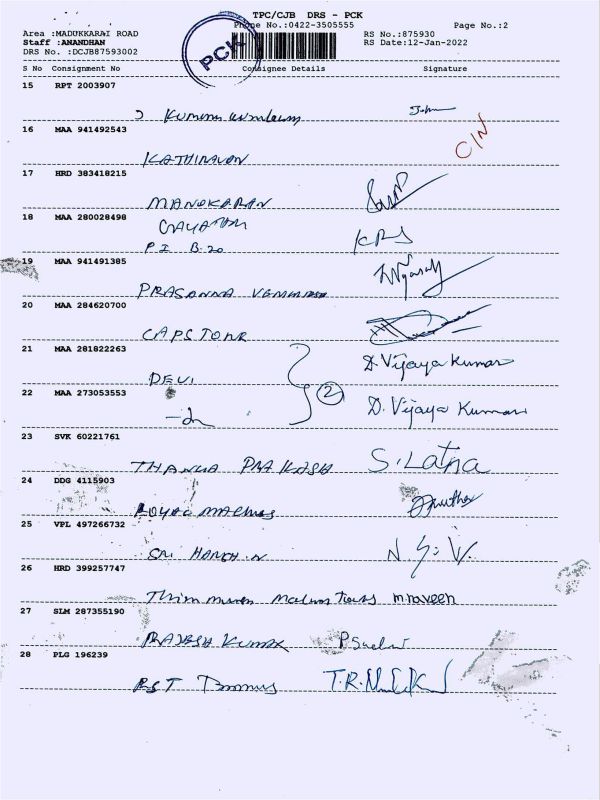 TPC/CJB DRS - PCK
Phone No.:0422-3505555
Page No.:2
Area :MADUKKARAI ROAD
Staff :ANANDHAN
DRS No. :DCJB87593002
RS No.:875930
RS Date:12-Jan-2022
PCK
S No Consignment No Consignee Details Signature
15 RPT 2003907
John
16 MAA 941492543
KATHIRAVON
C/N
17 HRD 383418215
MANOKARAN
18 MAA 280028498
GAYATHRI
P I B-20
KRS
19 MAA 941491385
PRASANNA
20 MAA 284620700
CAPSTONE
21 MAA 281822263
DEVI
D. Vijaya Kumar
2
22 MAA 273053553
D. Vijaya Kumar
23 SVK 60221761
THANGA PRAKASH
S. Latha
24 DDG 4115903
ROYAL
25 VPL 497266732
SRI
26 HRD 399257747
m naveen
27 SLM 287355190
RAJESH KUMAR
28 PLG 196239
RST
T.R.